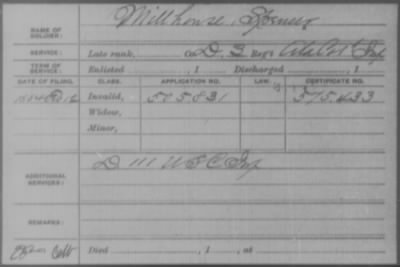 NAME OF SOLDIER: Millhouse, Spencer
SERVICE: Late rank, Co. D, 3 Reg't Ala Col Inf
TERM OF SERVICE: Enlisted , 1 Discharged , 1
DATE OF FILING. CLASS. APPLICATION NO. LAW. CERTIFICATE NO.
Invalid, 595831 575.433
Widow,
Minor,
ADDITIONAL SERVICES: D 111 U S C Inf
REMARKS:
Died , 1 , at